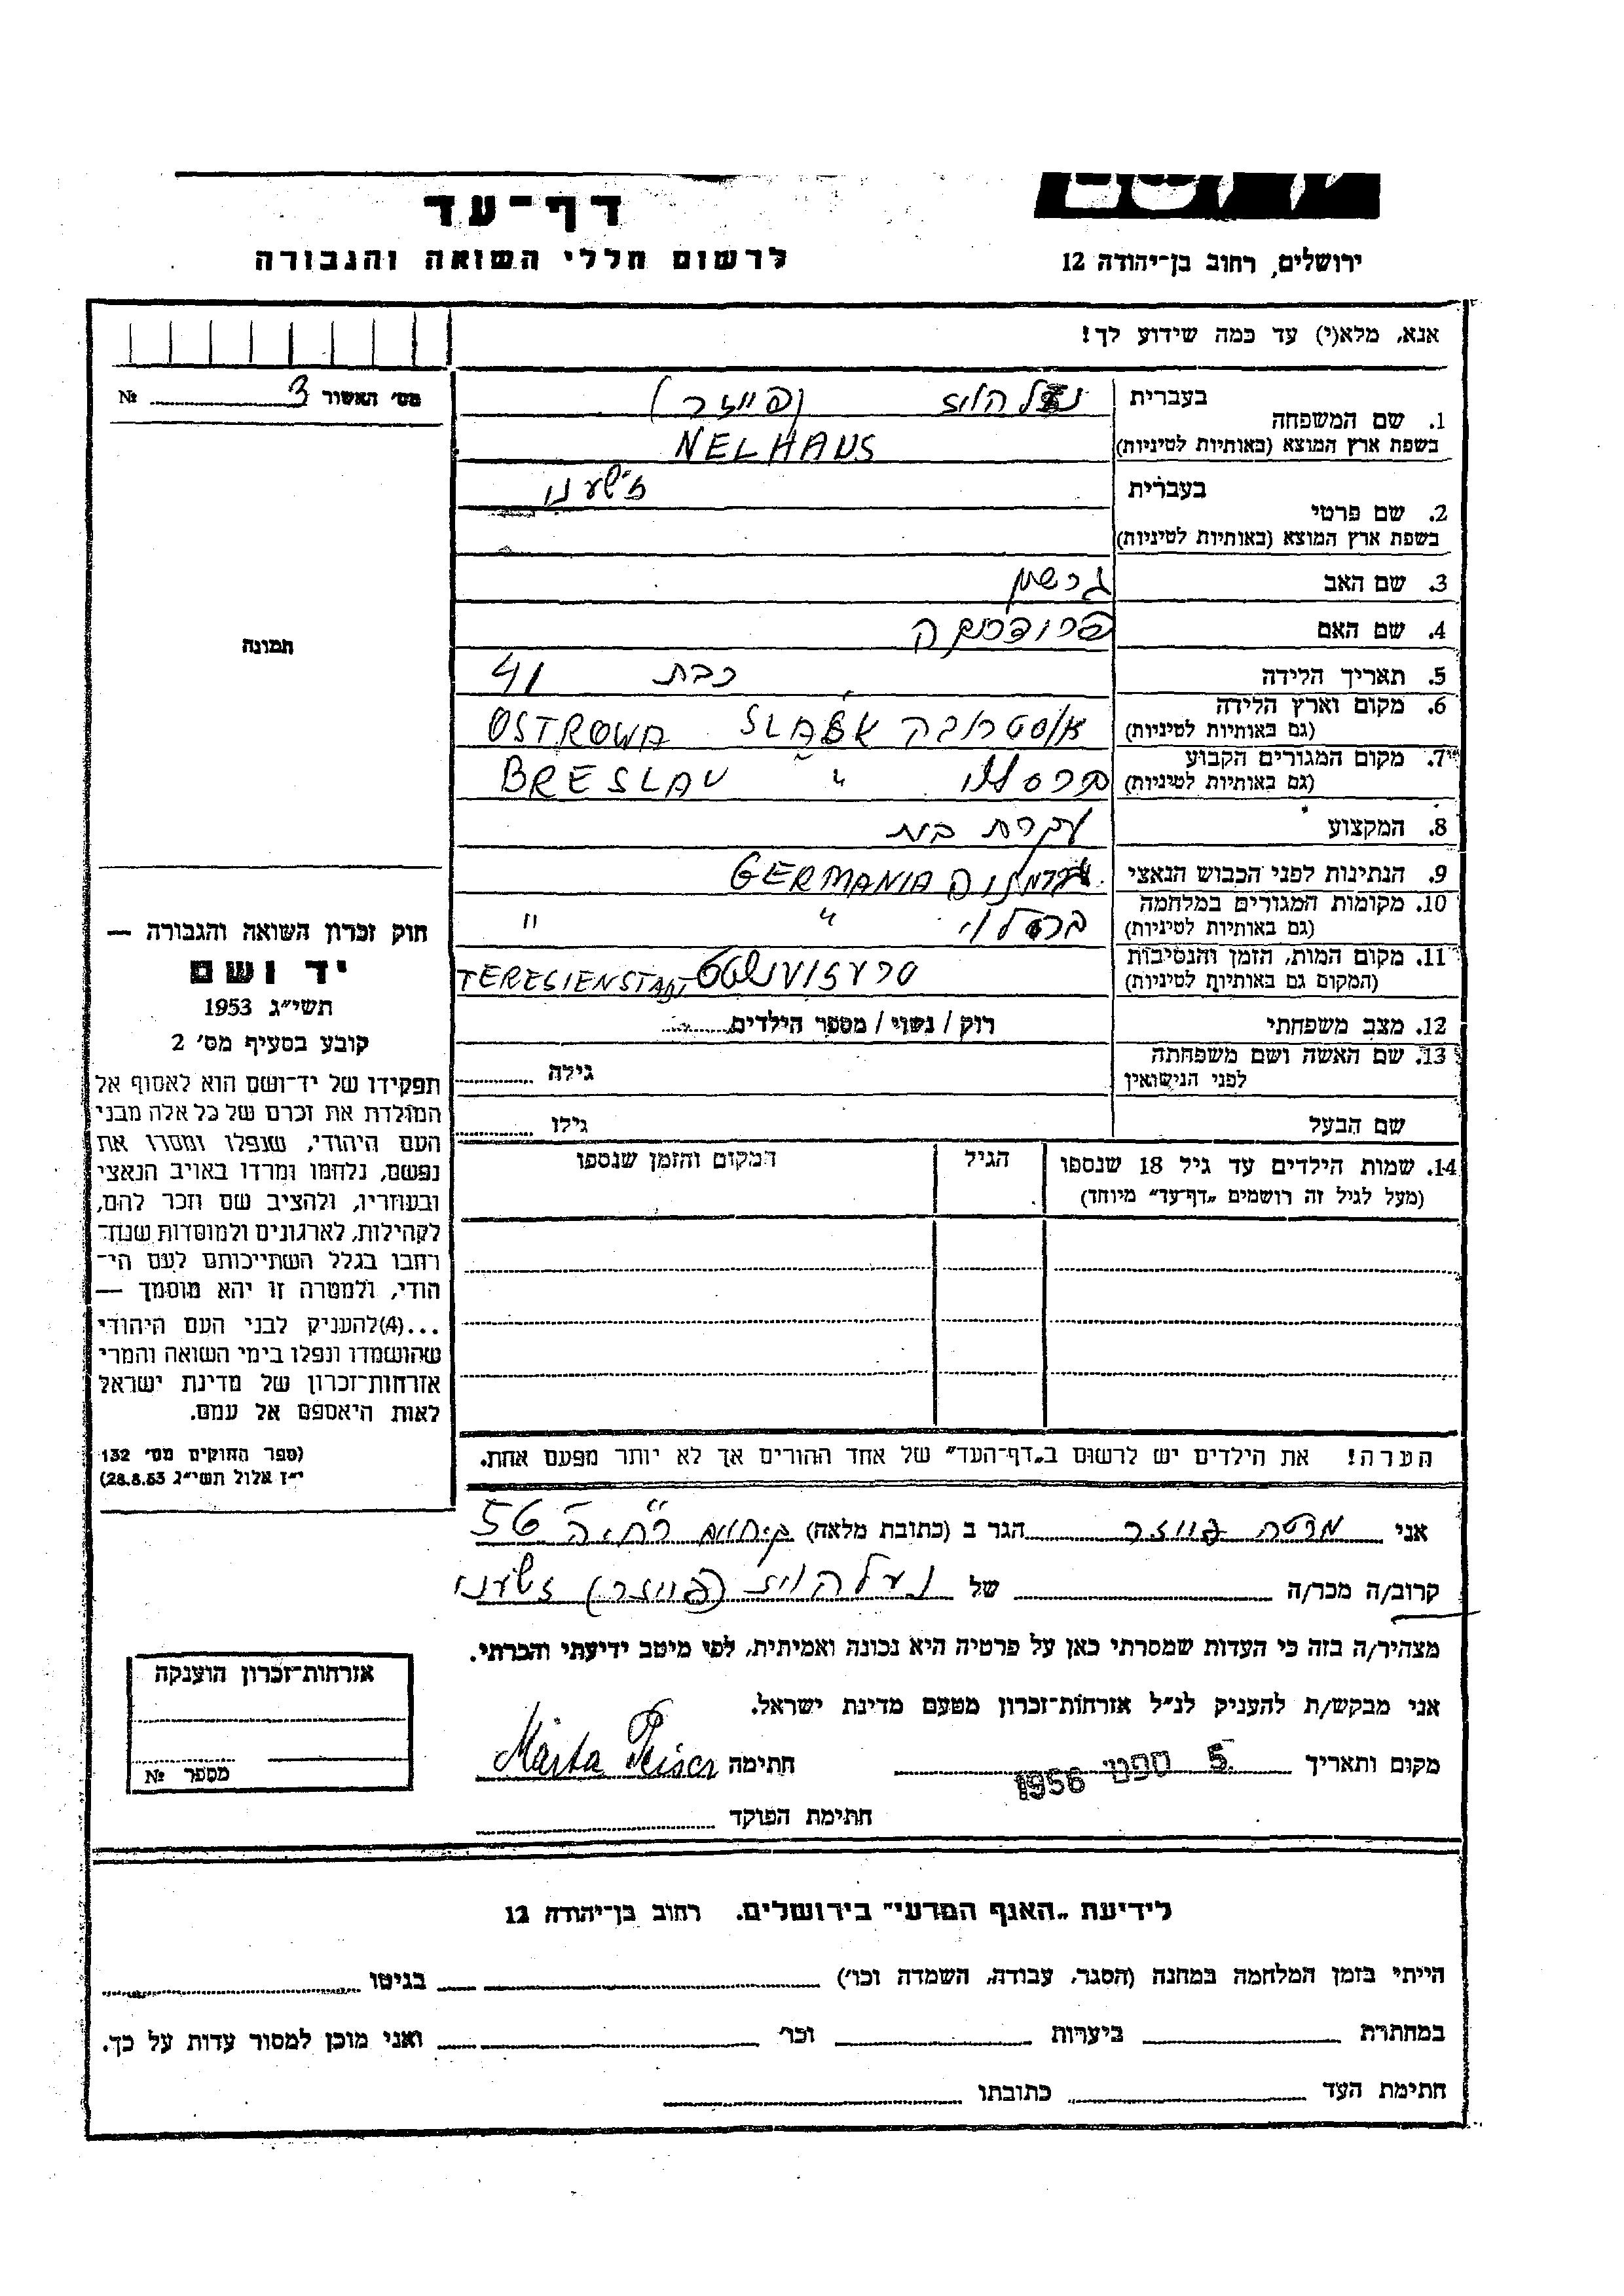 דף-עד
לרשום חללי השואה והגבורה
ירושלים, רחוב בן-יהודה 12
אנא, מלא(י) עד כמה שידוע לך!
מס' האשור 3 №
בעברית נעלהויז (פייזר)
1. שם המשפחה
בשפת ארץ המוצא (באותיות לטיניות) NELHAUS
בעברית
2. שם פרטי
בשפת ארץ המוצא (באותיות לטיניות)
3. שם האב גרשון
4. שם האם
5. תאריך הלידה כבת 41
6. מקום וארץ הלידה אוסטרובה OSTROWA
(גם באותיות לטיניות)
7. מקום המגורים הקבוע ברסלאו " BRESLAU
(גם באותיות לטיניות)
8. המקצוע עקרת בית
9. הנתינות לפני הכבוש הנאצי גרמניה GERMANIA
10. מקומות המגורים במלחמה ברסלוי " "
(גם באותיות לטיניות)
11. מקום המות, הזמן והנסיבות טרעזיענשטט TERESIENSTADT
(המקום גם באותיות לטיניות)
12. מצב משפחתי רווק / נשוי / מספר הילדים
13. שם האשה ושם משפחתה גילה
לפני הנישואין
שם הבעל גילו
14. שמות הילדים עד גיל 18 שנספו הגיל המקום והזמן שנספו
(מעל לגיל זה רושמים „דף-עד" מיוחד)
הערה! את הילדים יש לרשום ב„דף-העד" של אחד ההורים אך לא יותר מפעם אחת.
תמונה
חוק זכרון השואה והגבורה —
יד ושם
תשי"ג 1953
קובע בסעיף מס' 2
תפקידו של יד-ושם הוא לאסוף אל
המולדת את זכרם של כל אלה מבני
העם היהודי, שנפלו ומסרו את
נפשם, נלחמו ומרדו באויב הנאצי
ובעוזריו, ולהציב שם וזכר להם,
לקהילות, לארגונים ולמוסדות שנח-
רבו בגלל השתייכותם לעם הי-
הודי, ולמטרה זו יהא מוסמך —
...(4)להעניק לבני העם היהודי
שהושמדו ונפלו בימי השואה והמרי
אזרחות-זכרון של מדינת ישראל
לאות היאספם אל עמם.
(ספר החוקים מס' 132
י"ז אלול תשי"ג 28.8.53)
אני מרטה פייזר הגר ב (כתובת מלאה) 56
קרוב/ה מכר/ה של נעלהויז (פייזר)
מצהיר/ה בזה כי העדות שמסרתי כאן על פרטיה היא נכונה ואמיתית, לפי מיטב ידיעתי והכרתי.
אני מבקש/ת להעניק לנ"ל אזרחות-זכרון מטעם מדינת ישראל.
מקום ותאריך 5. ספט' 1956 חתימה Märta Peiser
חתימת הפוקד
אזרחות-זכרון הוענקה
מספר №
לידיעת „האגף המדעי" בירושלים. רחוב בן-יהודה 12
הייתי בזמן המלחמה במחנה (הסגר, עבודה, השמדה וכו') בגיטו
במחתרת ביערות וכו' ואני מוכן למסור עדות על כך.
חתימת העד כתובתו